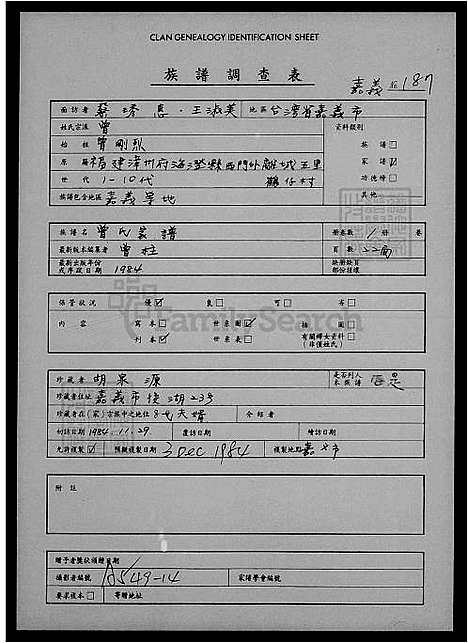 CLAN GENEALOGY IDENTIFICATION SHEET
族譜調查表
嘉義 187
面訪者 王淑美 地區 台灣省嘉義市
姓氏宗派 曾 資料類別
始祖 曾剛烈 族譜□
原籍 福建漳州府海澄縣西門外離城五里 家譜☑
世代 1-10代 鵝仔村 功德榜□
族譜包含地區 嘉義等地 其他
族譜名 曾氏家譜 册卷數 1 册 卷
最新版本編纂者 曾柱 頁數 22面
最新出版年份或序跋日期 1984 缺册缺頁部份挂綫
保管狀況 優☑ 良□ 可□ 劣□
内容 寫本□ 世系圖☑ 插圖□
刊本☑ 世系表□ 有關婦女資料(非僅姓氏)□
FamilySearch
珍藏者 胡泉源 是否列入本族譜 是
珍藏者住址 嘉義市 湖23號
珍藏者在(家)宗族中之地位 8代天婿 介紹者
初訪日期 1984.11.29. 覆訪日期 續訪日期
允許複製☑ 預擬複製日期 3 DEC 1984 複製地點 嘉義市
附註
贈予者獎狀頒贈日期
攝影者編號 A549-14 家譜學會編號
要求複本□ 寄贈地址